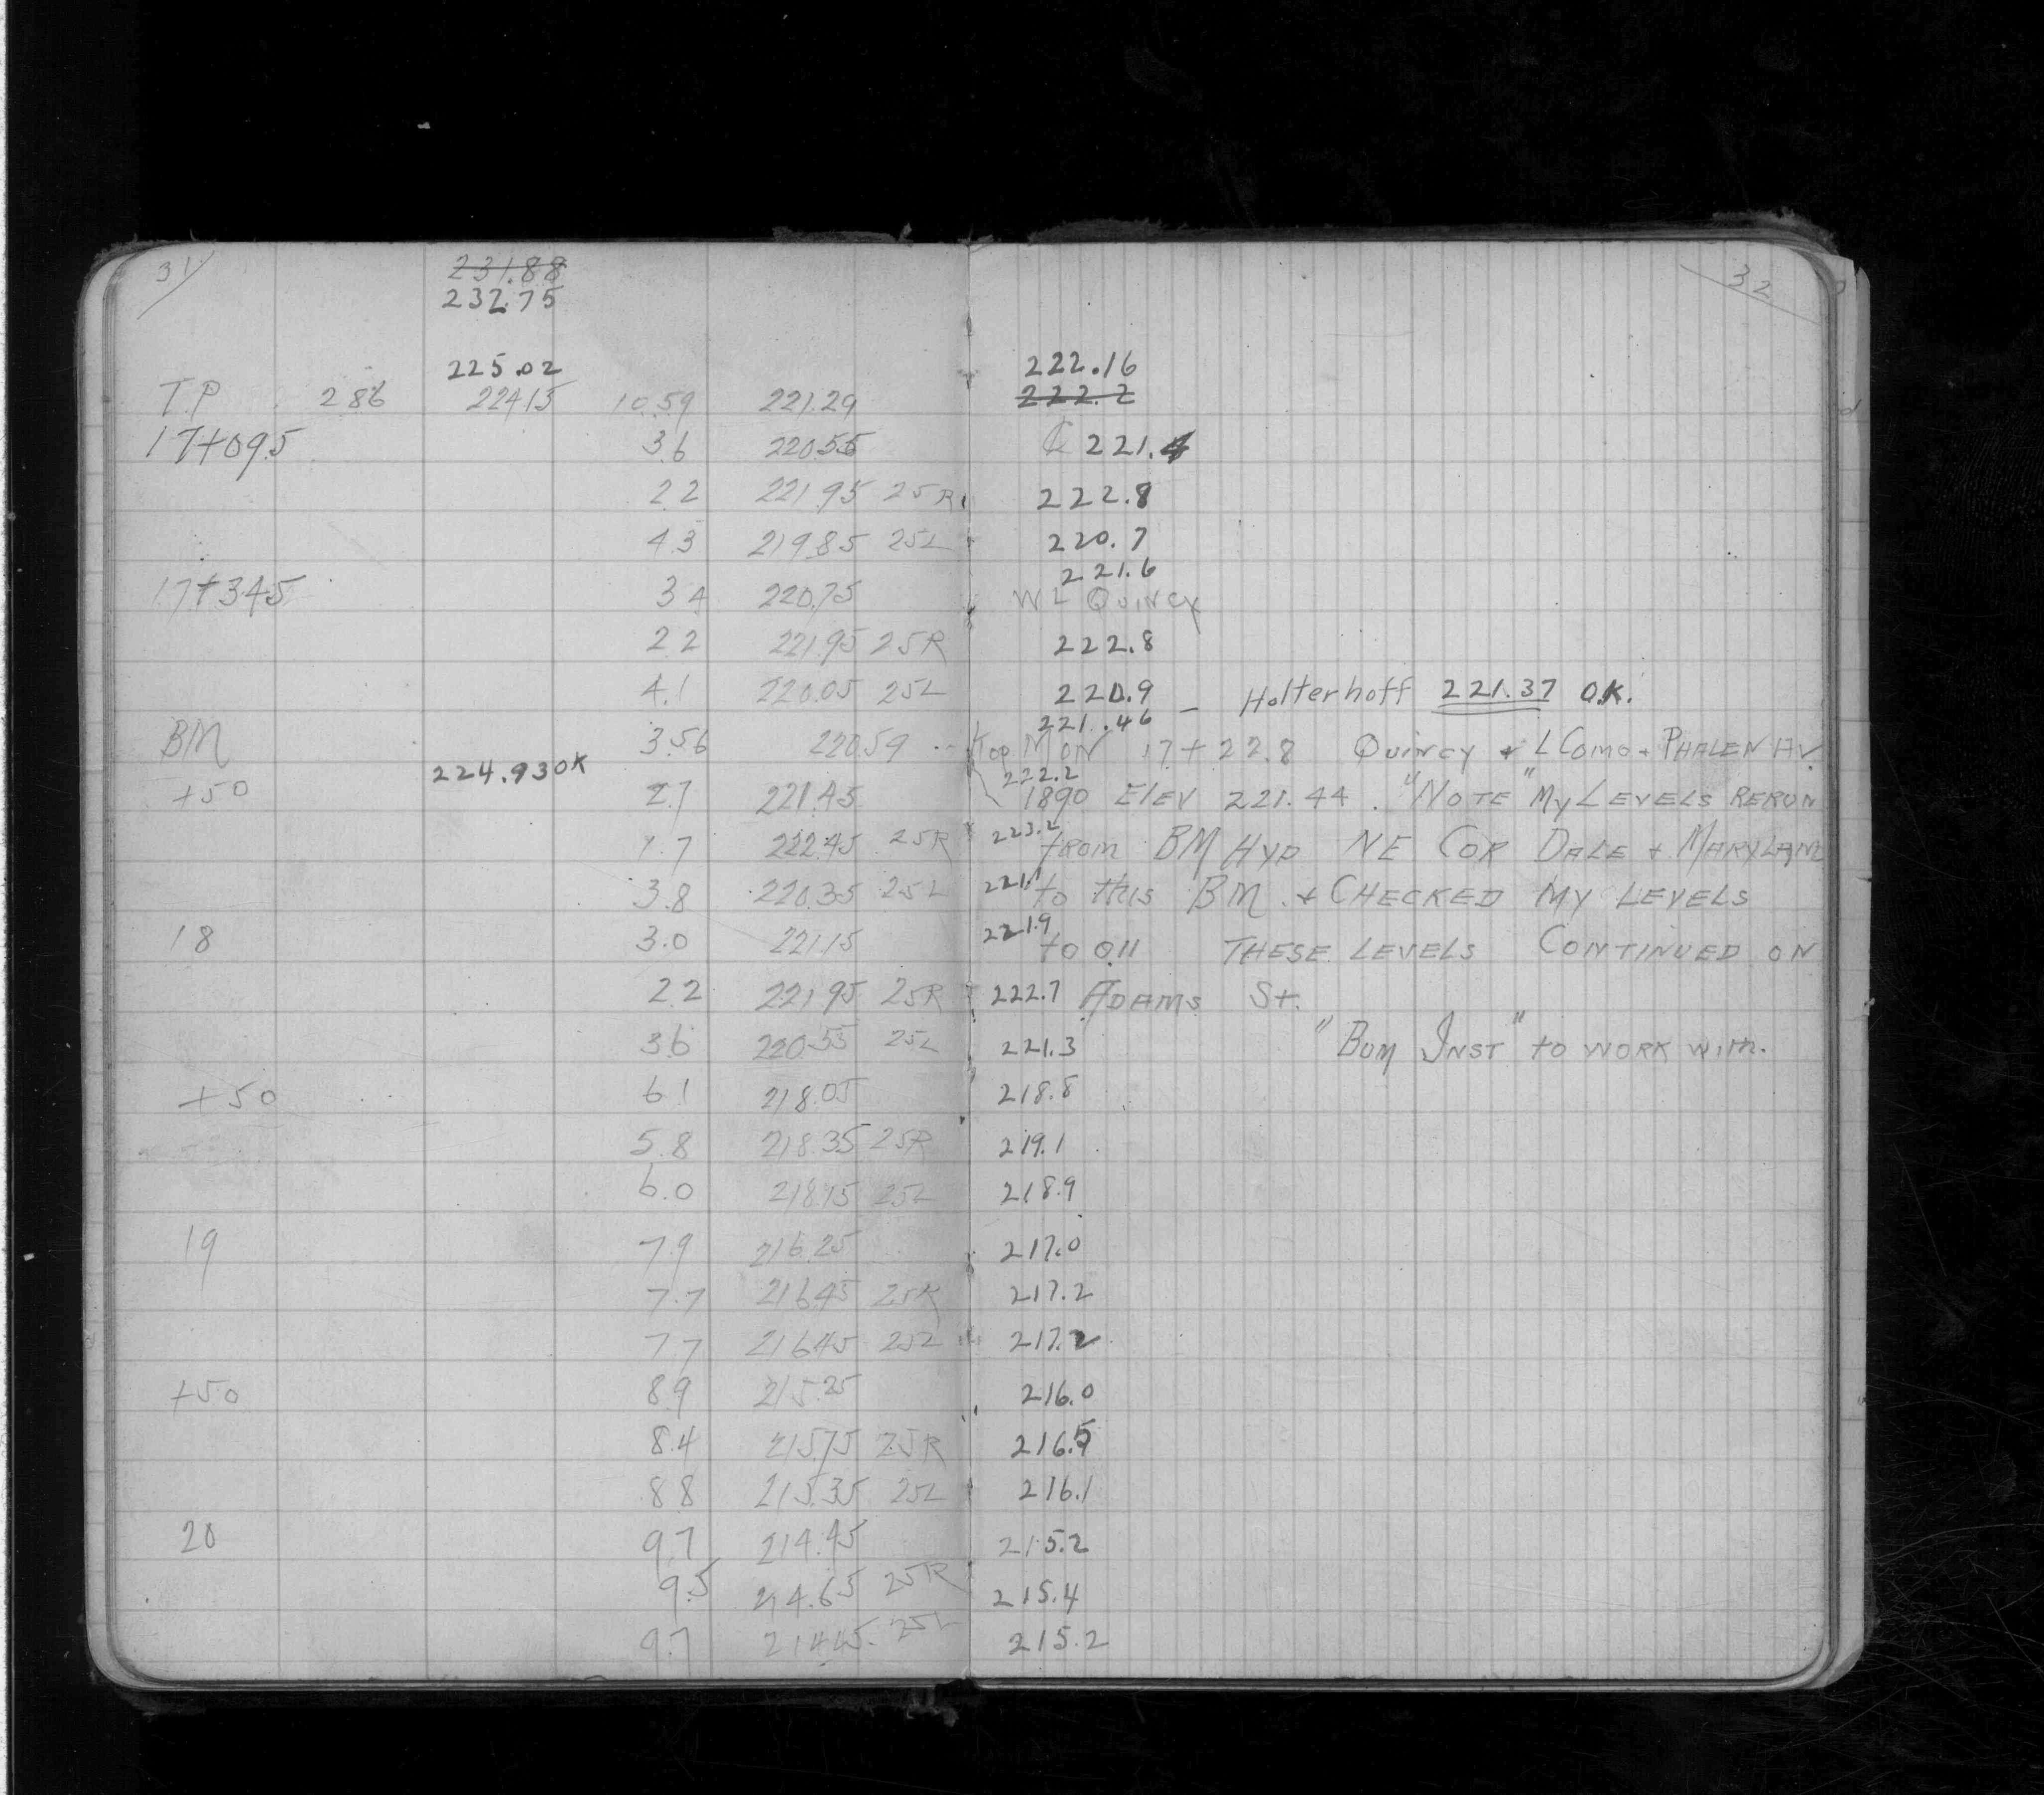 31 32
231.88
232.75
225.02 222.16
T.P 2.86 224.15 10.59 221.29 222.2
17+09.5 3.6 220.55 ℄ 221.4
2.2 221.95 25R 222.8
4.3 219.85 25L 220.7
221.6
17+34.5 3.4 220.75 WL Quincy
2.2 221.95 25R 222.8
4.1 220.05 25L 220.9 - Holterhoff 221.37 O.K.
221.46
BM 3.56 220.59 Top Mon 17+22.8 Quincy + L Como + Phalen Av.
224.93 OK 222.2
+50 2.7 221.45 1890 Elev 221.44. "Note" My Levels rerun
1.7 222.45 25R 223.2 from BM Hyd NE Cor Dale + Maryland
3.8 220.35 25L 221.1 to this BM + Checked my levels
18 3.0 221.15 221.9 to 0.11 These levels continued on
2.2 221.95 25R 222.7 Adams St.
3.6 220.55 25L 221.3 "Bum Inst" to work with.
+50 6.1 218.05 218.8
5.8 218.35 25R 219.1
6.0 218.15 25L 218.9
19 7.9 216.25 217.0
7.7 216.45 25R 217.2
7.7 216.45 25L 217.2
+50 8.9 215.25 216.0
8.4 215.75 25R 216.5
8.8 215.35 25L 216.1
20 9.7 214.45 215.2
9.5 214.65 25R 215.4
9.7 214.45 25L 215.2